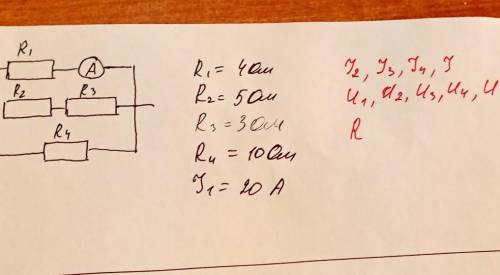 R₁
A
R₂ R₃
R₄
R₁ = 4 Ом
R₂ = 5 Ом
R₃ = 3 Ом
R₄ = 10 Ом
J₁ = 20 A
J₂, J₃, J₄, J
U₁, U₂, U₃, U₄, U
R